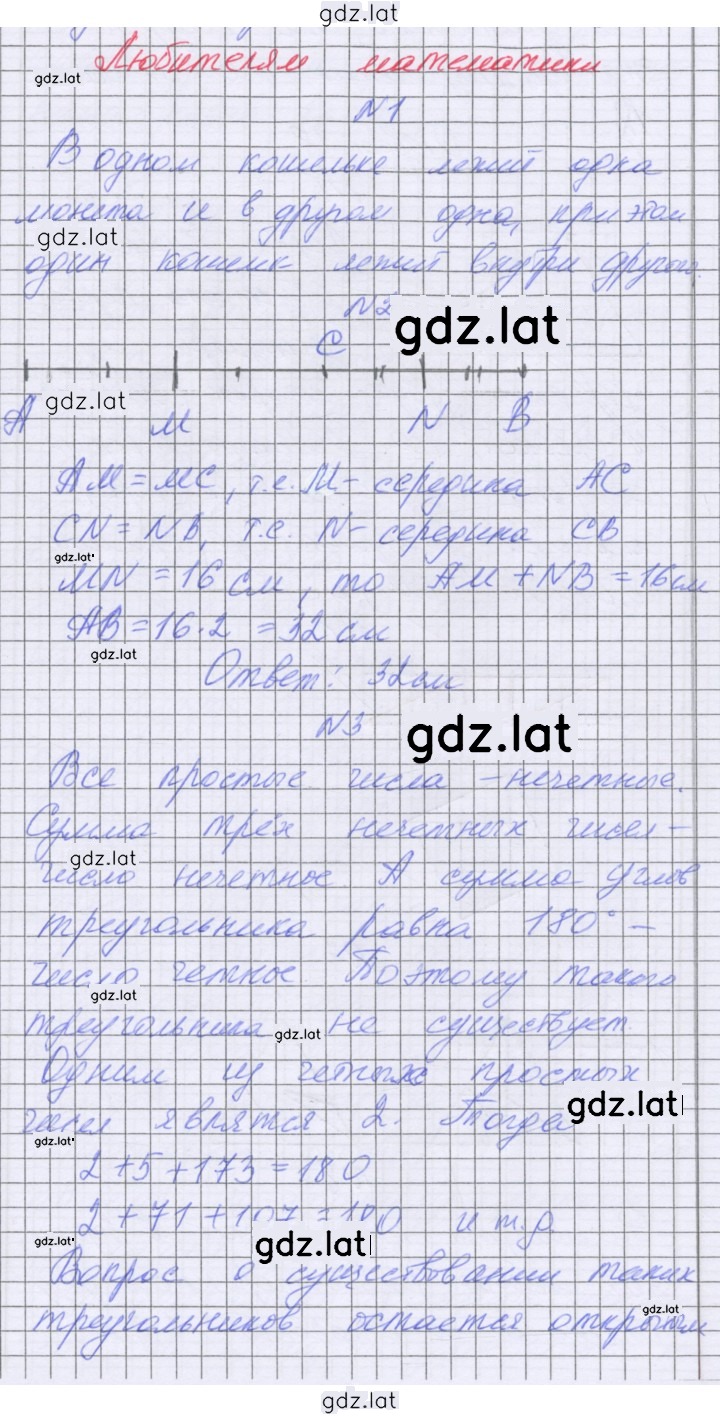 gdz.lat
Любителям математики
gdz.lat
N1
В одном кошельке лежит одна
монета и в другом одна, при этом
gdz.lat
один кошелек лежит внутри другого.
N2
gdz.lat
C
gdz.lat
A M N B
AM = MC, т.е. M - середина AC
CN = NB, т.е. N - середина CB
gdz.lat
MN = 16 см, то AM + NB = 16 см
AB = 16·2 = 32 см
gdz.lat
Ответ: 32 см
N3
gdz.lat
Все простые числа - нечетные.
Сумма трёх нечетных чисел -
gdz.lat
число нечетное. А сумма углов
треугольника равна 180° -
число четное Поэтому такого
gdz.lat
треугольника не существует.
gdz.lat
Одним из четных простых
gdz.lat
чисел являтся 2. Тогда
gdz.lat
2 + 5 + 173 = 180
2 + 71 + 107 = 180 и т.д.
gdz.lat
gdz.lat
Вопрос о существовании таких
gdz.lat
треугольников остается открытым
gdz.lat